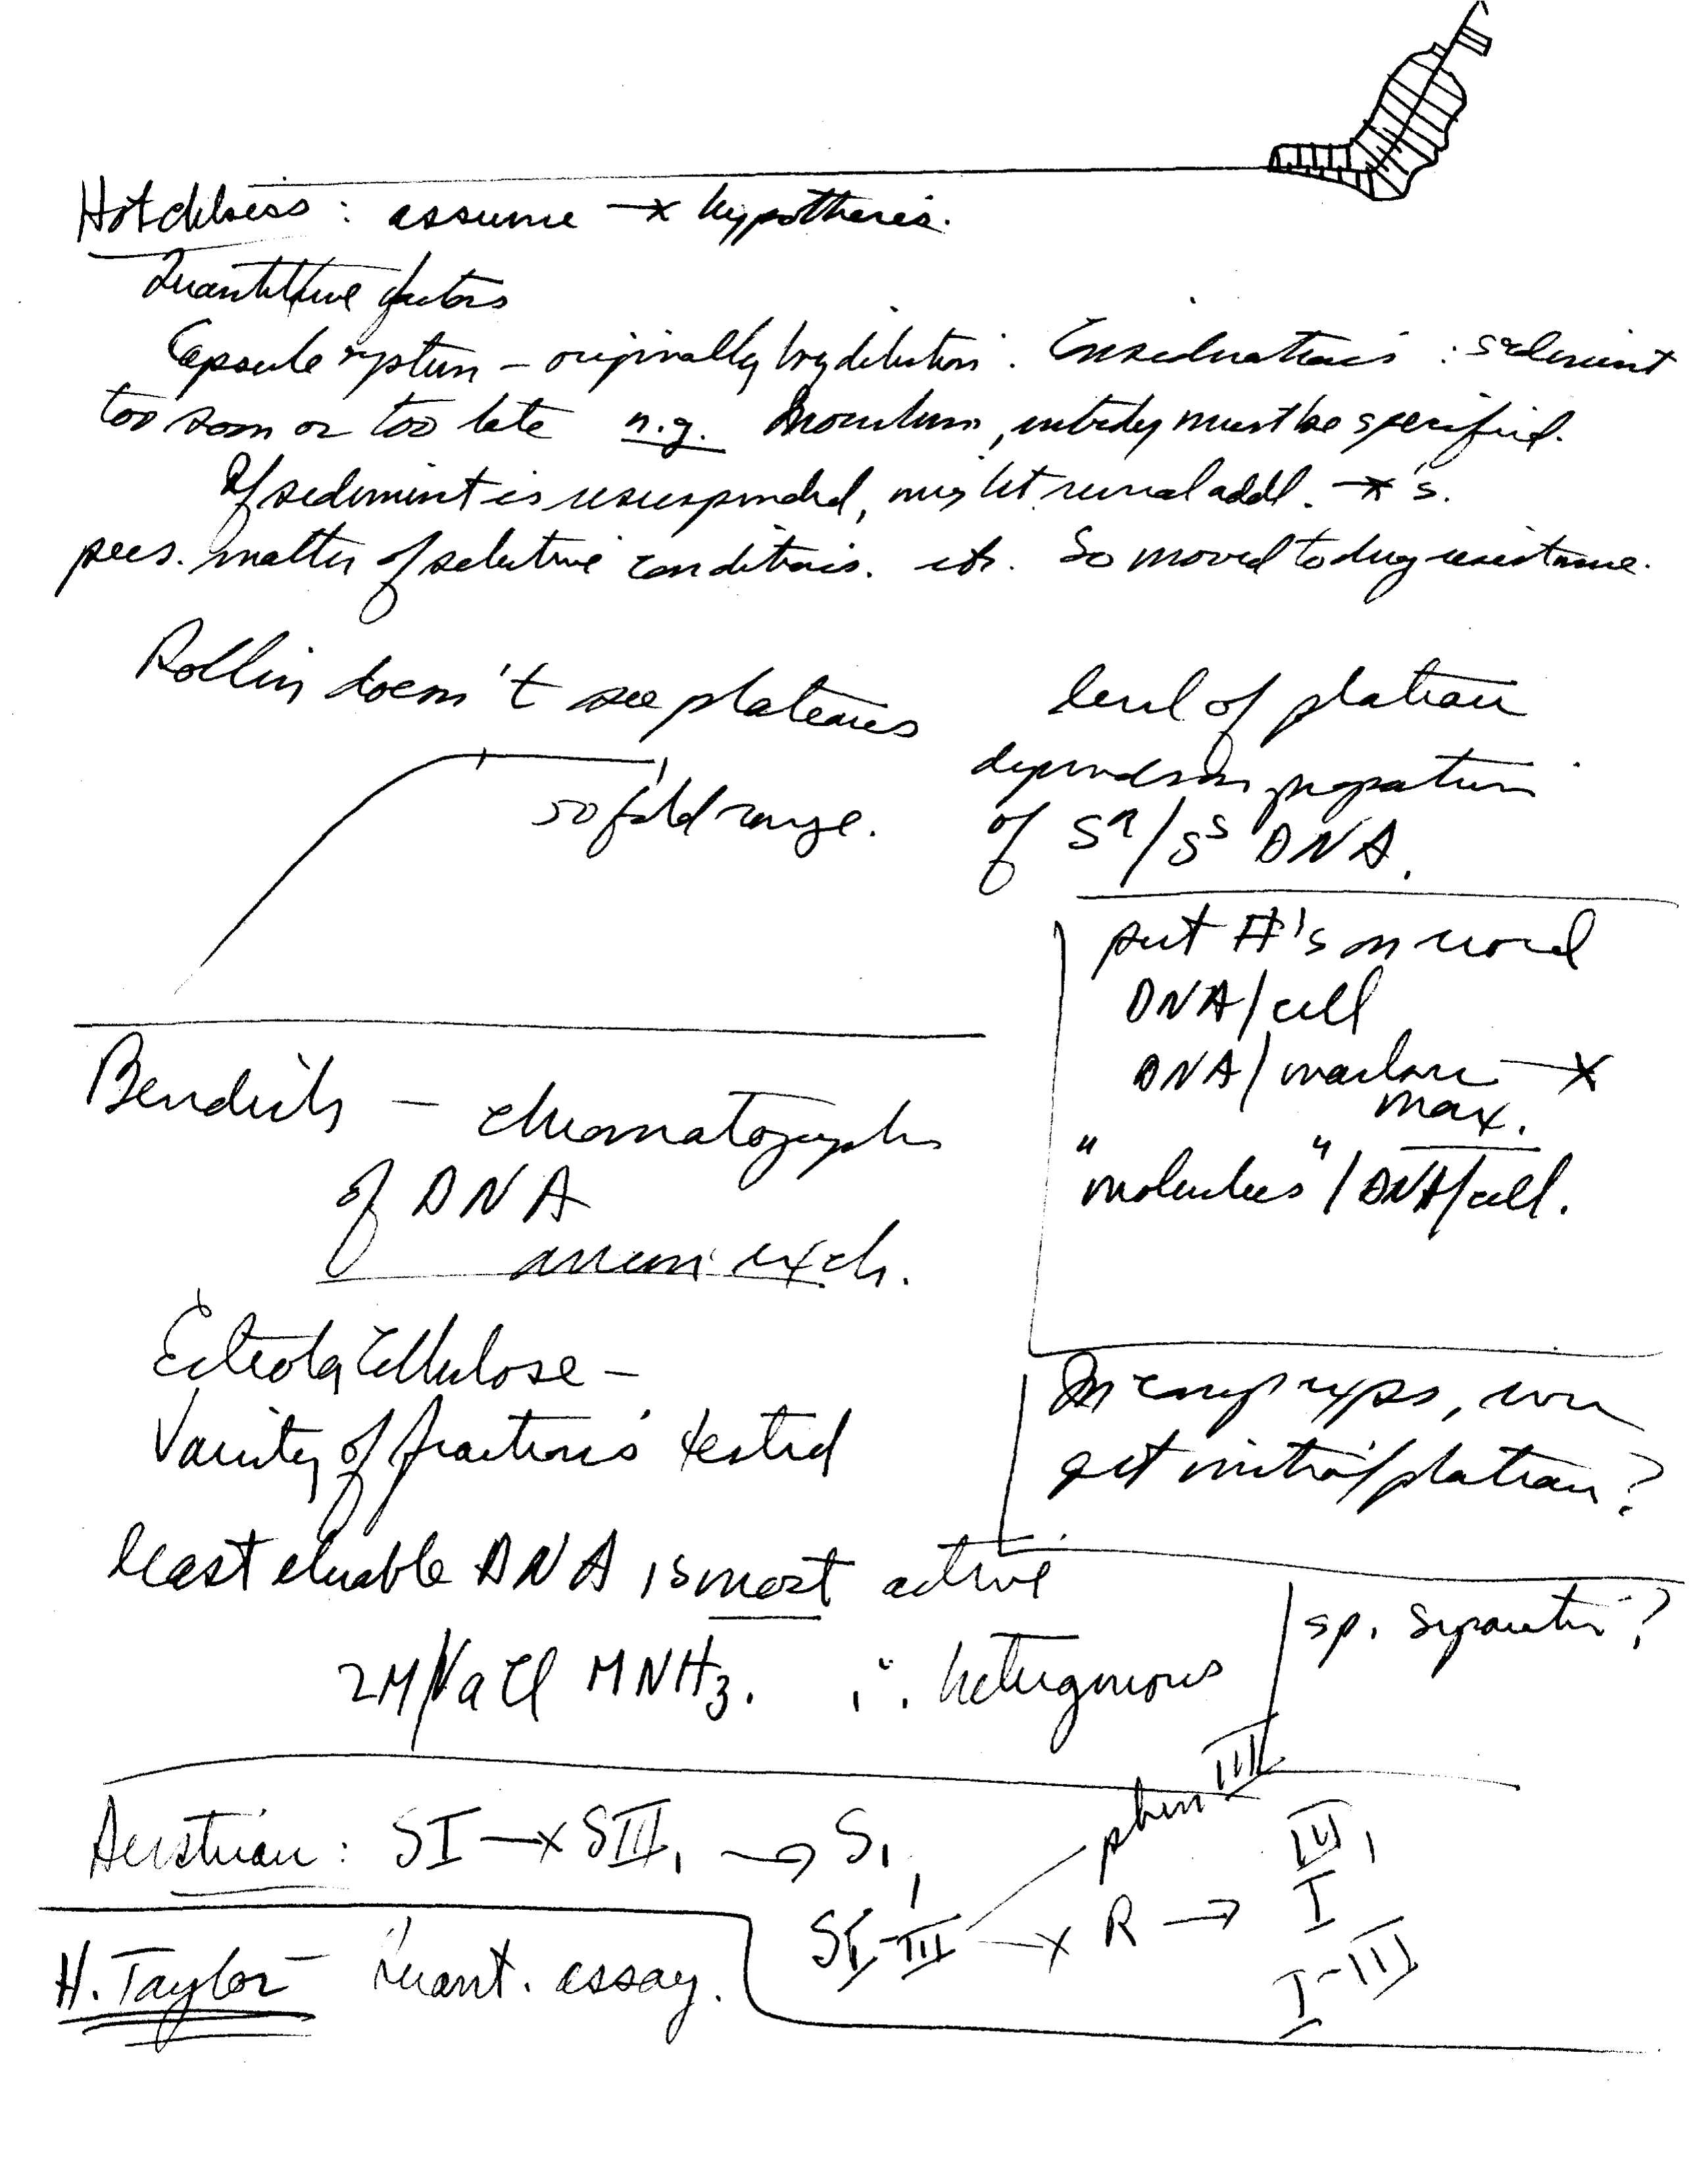 Hotchkiss : assume —x hypothesis.
Quantitative factors
Capsule system – originally by dilution. Considerations : sediment
too soon or too late n.g. Inoculum, antibody must be specified.
If sediment is resuspended, might reveal addl. —x's.
pees. matter of selective conditions. etc. So moved to drug resistance.
Rollin doesn't see plateaus
50 fold range.
level of plateau
depends on proportion
of Sʳ/Sˢ DNA.
put #'s on
DNA/cell
DNA/ —x
max.
"molecules" / DNA/cell.
Bendich – chromatography
of DNA
anion exch.
Ecteola Cellulose –
Variety of fractions tested
In exps, you
get initial plateau?
least eluable DNA is most active
2M NaCl M NH3. ∴ heterogenous
sp. separation?
Austrian : SI —x SIII₁ → S₁
phen III
SI-III —x R → III₁
I
I-III
H. Taylor – Quant. assay.